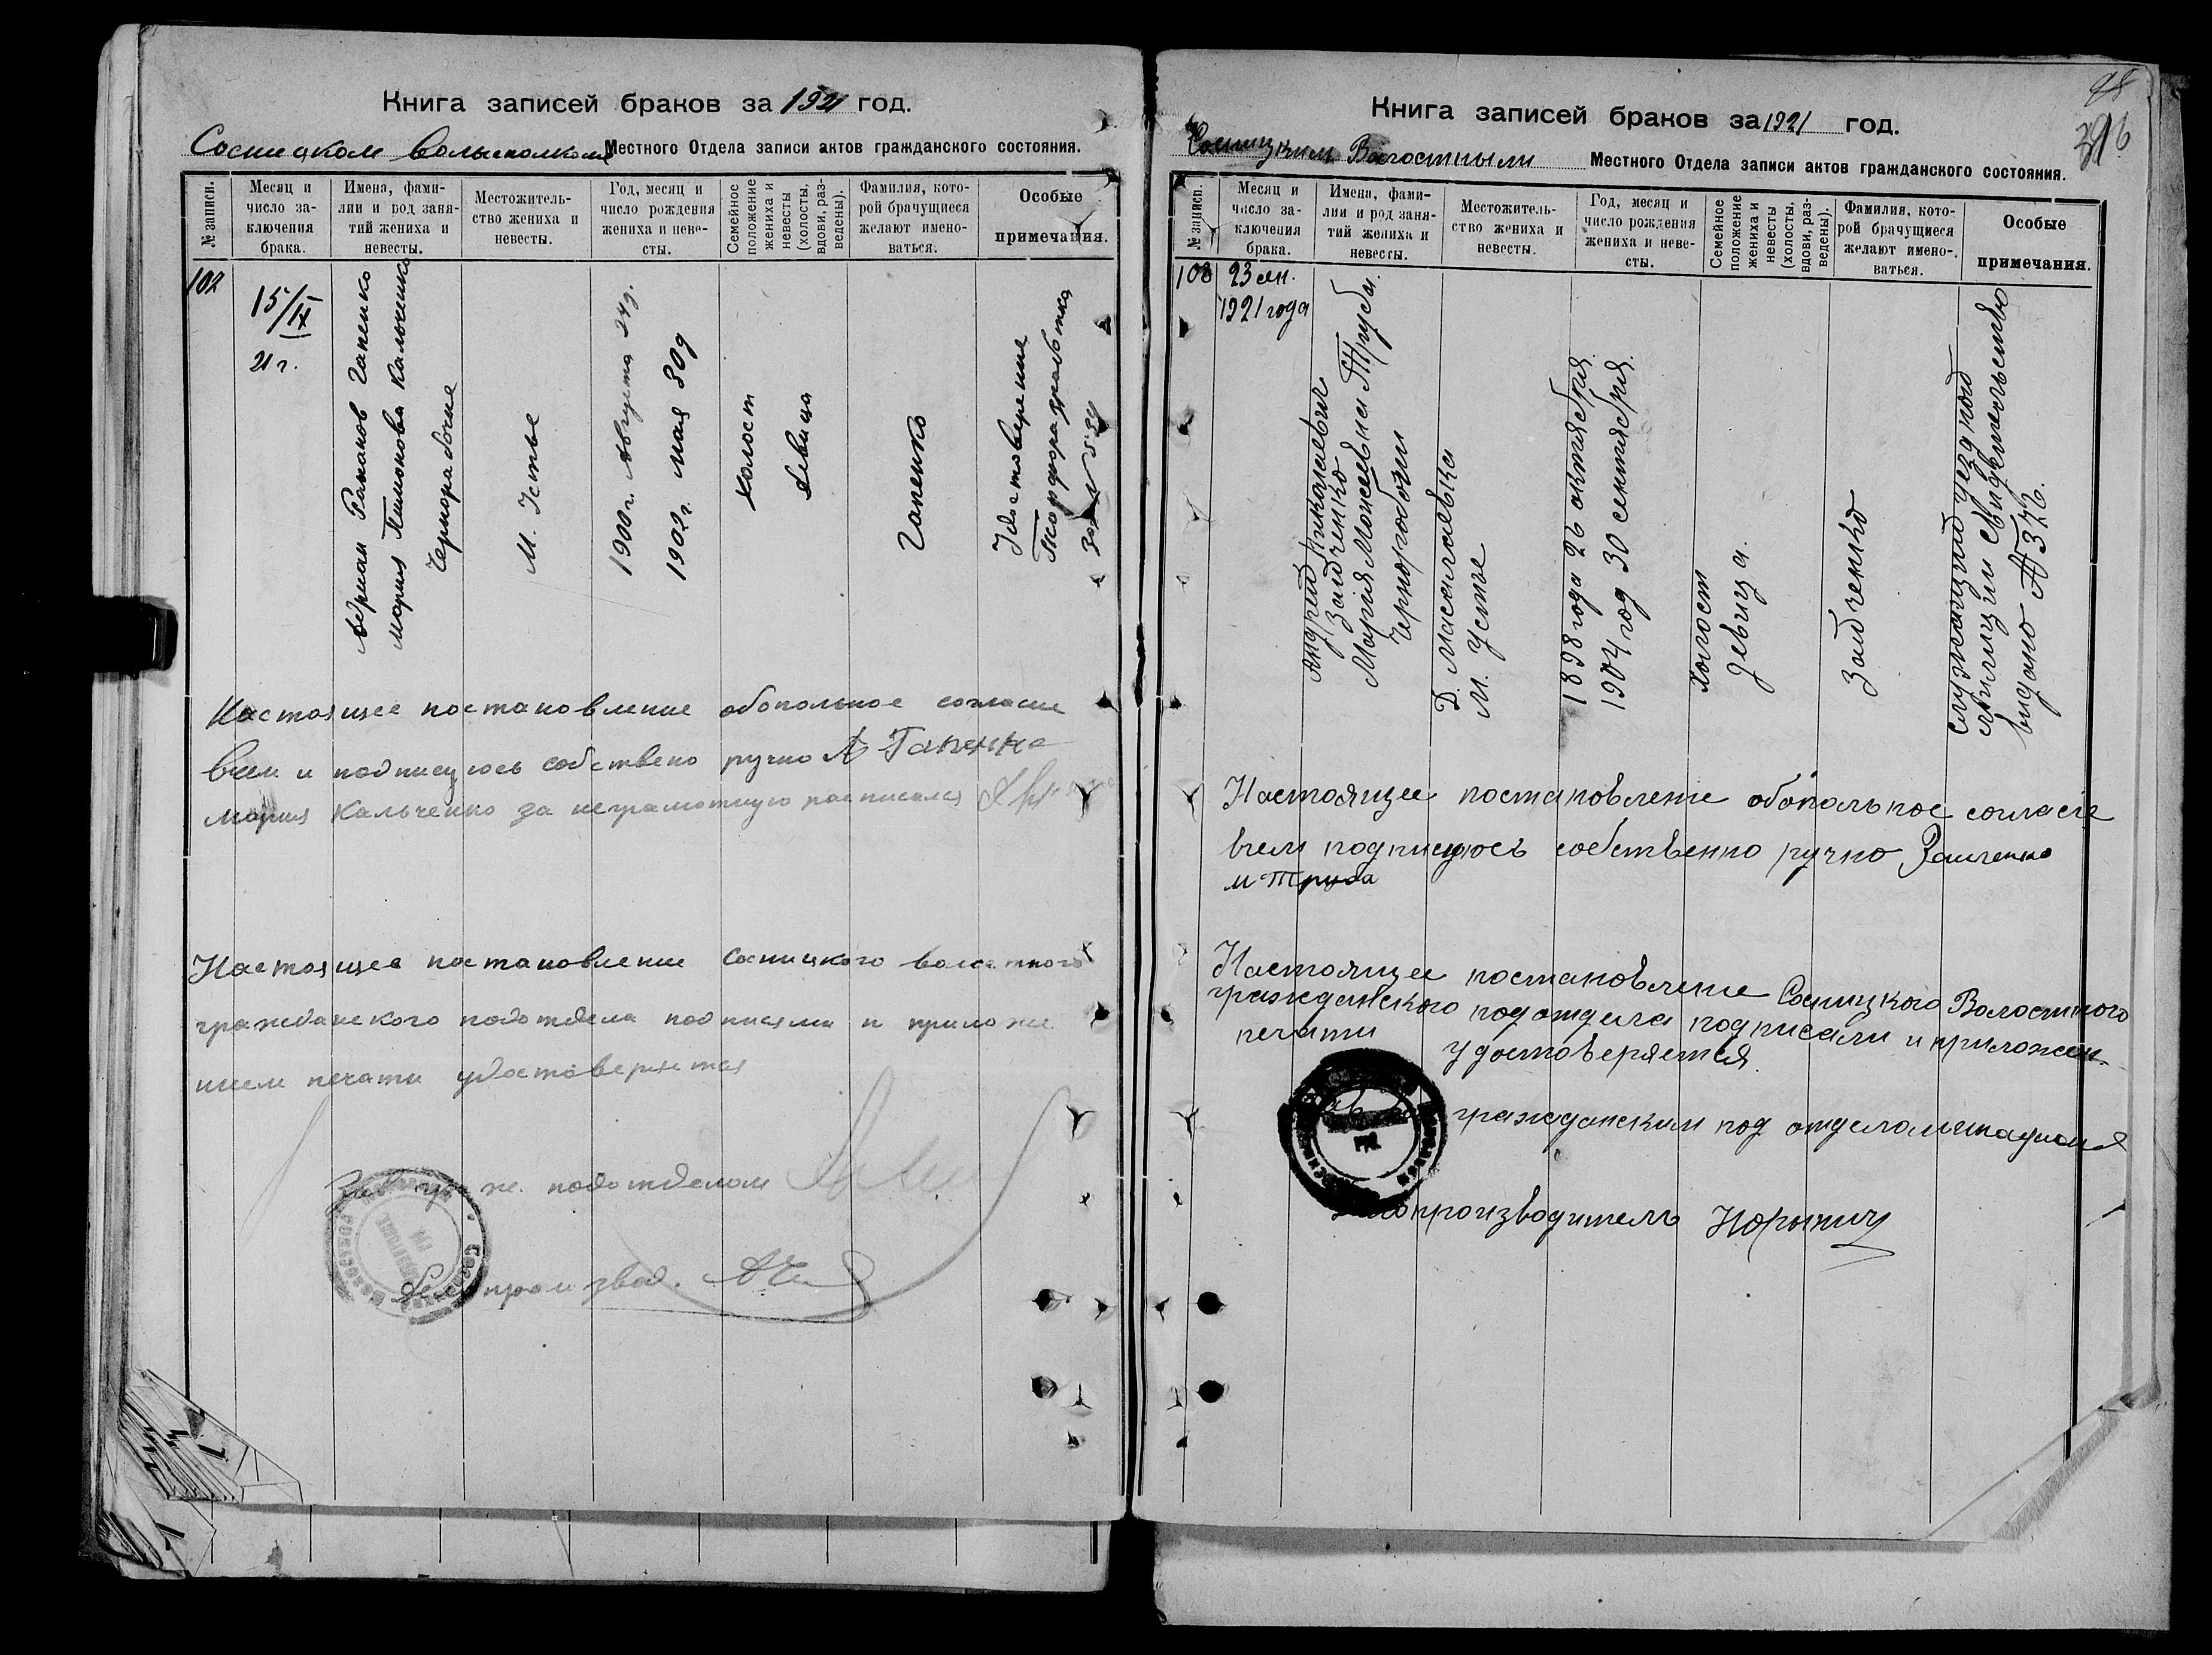 Книга записей браков за 1921 год.
Сосницком Волисполкоме Местного Отдела записи актов гражданского состояния.
№ записи.
Месяц и число заключения брака.
Имена, фамилии и род занятий жениха и невесты.
Местожительство жениха и невесты.
Год, месяц и число рождения жениха и невесты.
Семейное положение жениха и невесты (холосты, вдовы, разведены).
Фамилия, которой брачущиеся желают именоваться.
Особые примечания.
102
15/IX
21 г.
Адриан Романов Гапенко
Мария Пимонова Кальченко
Чернорабочие
М. Устье
1900 г. Августа 24 д.
1902 г. мая 30 д
Холост
Девица
Гапенко
Удостоверение
Торфоразработка
за №
Настоящее постановление обопольное согласие
вчем и подписуюсь собствено ручно А Гапенко
Мария Кальченко за неграмотную расписался
Настоящее постановление Сосницкого волостного
гражданского подотдела подписями и приложе
нием печати удостоверяется
Зав граж. подотделом
Делопроизвод.
Книга записей браков за 1921 год.
98
Сосницким Волостным Местного Отдела записи актов гражданского состояния.
№ записи.
Месяц и число заключения брака.
Имена, фамилии и род занятий жениха и невесты.
Местожительство жениха и невесты.
Год, месяц и число рождения жениха и невесты.
Семейное положение жениха и невесты (холосты, вдовы, разведены).
Фамилия, которой брачущиеся желают именоваться.
Особые примечания.
108
23 сен.
1921 года
Андрей Николаевич
Зайченко
Мария Моисеевна Труба.
Чернорабочи
Д.
М. Усте
1898 года 26 октября
1904 год 30 сентября.
Холост
Девица.
Зайченко
служащий уездной
милиции Свидетельство
видано № 326.
Настоящее постановлене обопольное согласе
вчем подписуюсь собственно ручно Зайченко
М Труба
Настоящее постановлене Сосницкого Волостного
гражданского подотдела подписами и приложен
печати удостоверяется.
гражданским под отделом
Делопроизводитель